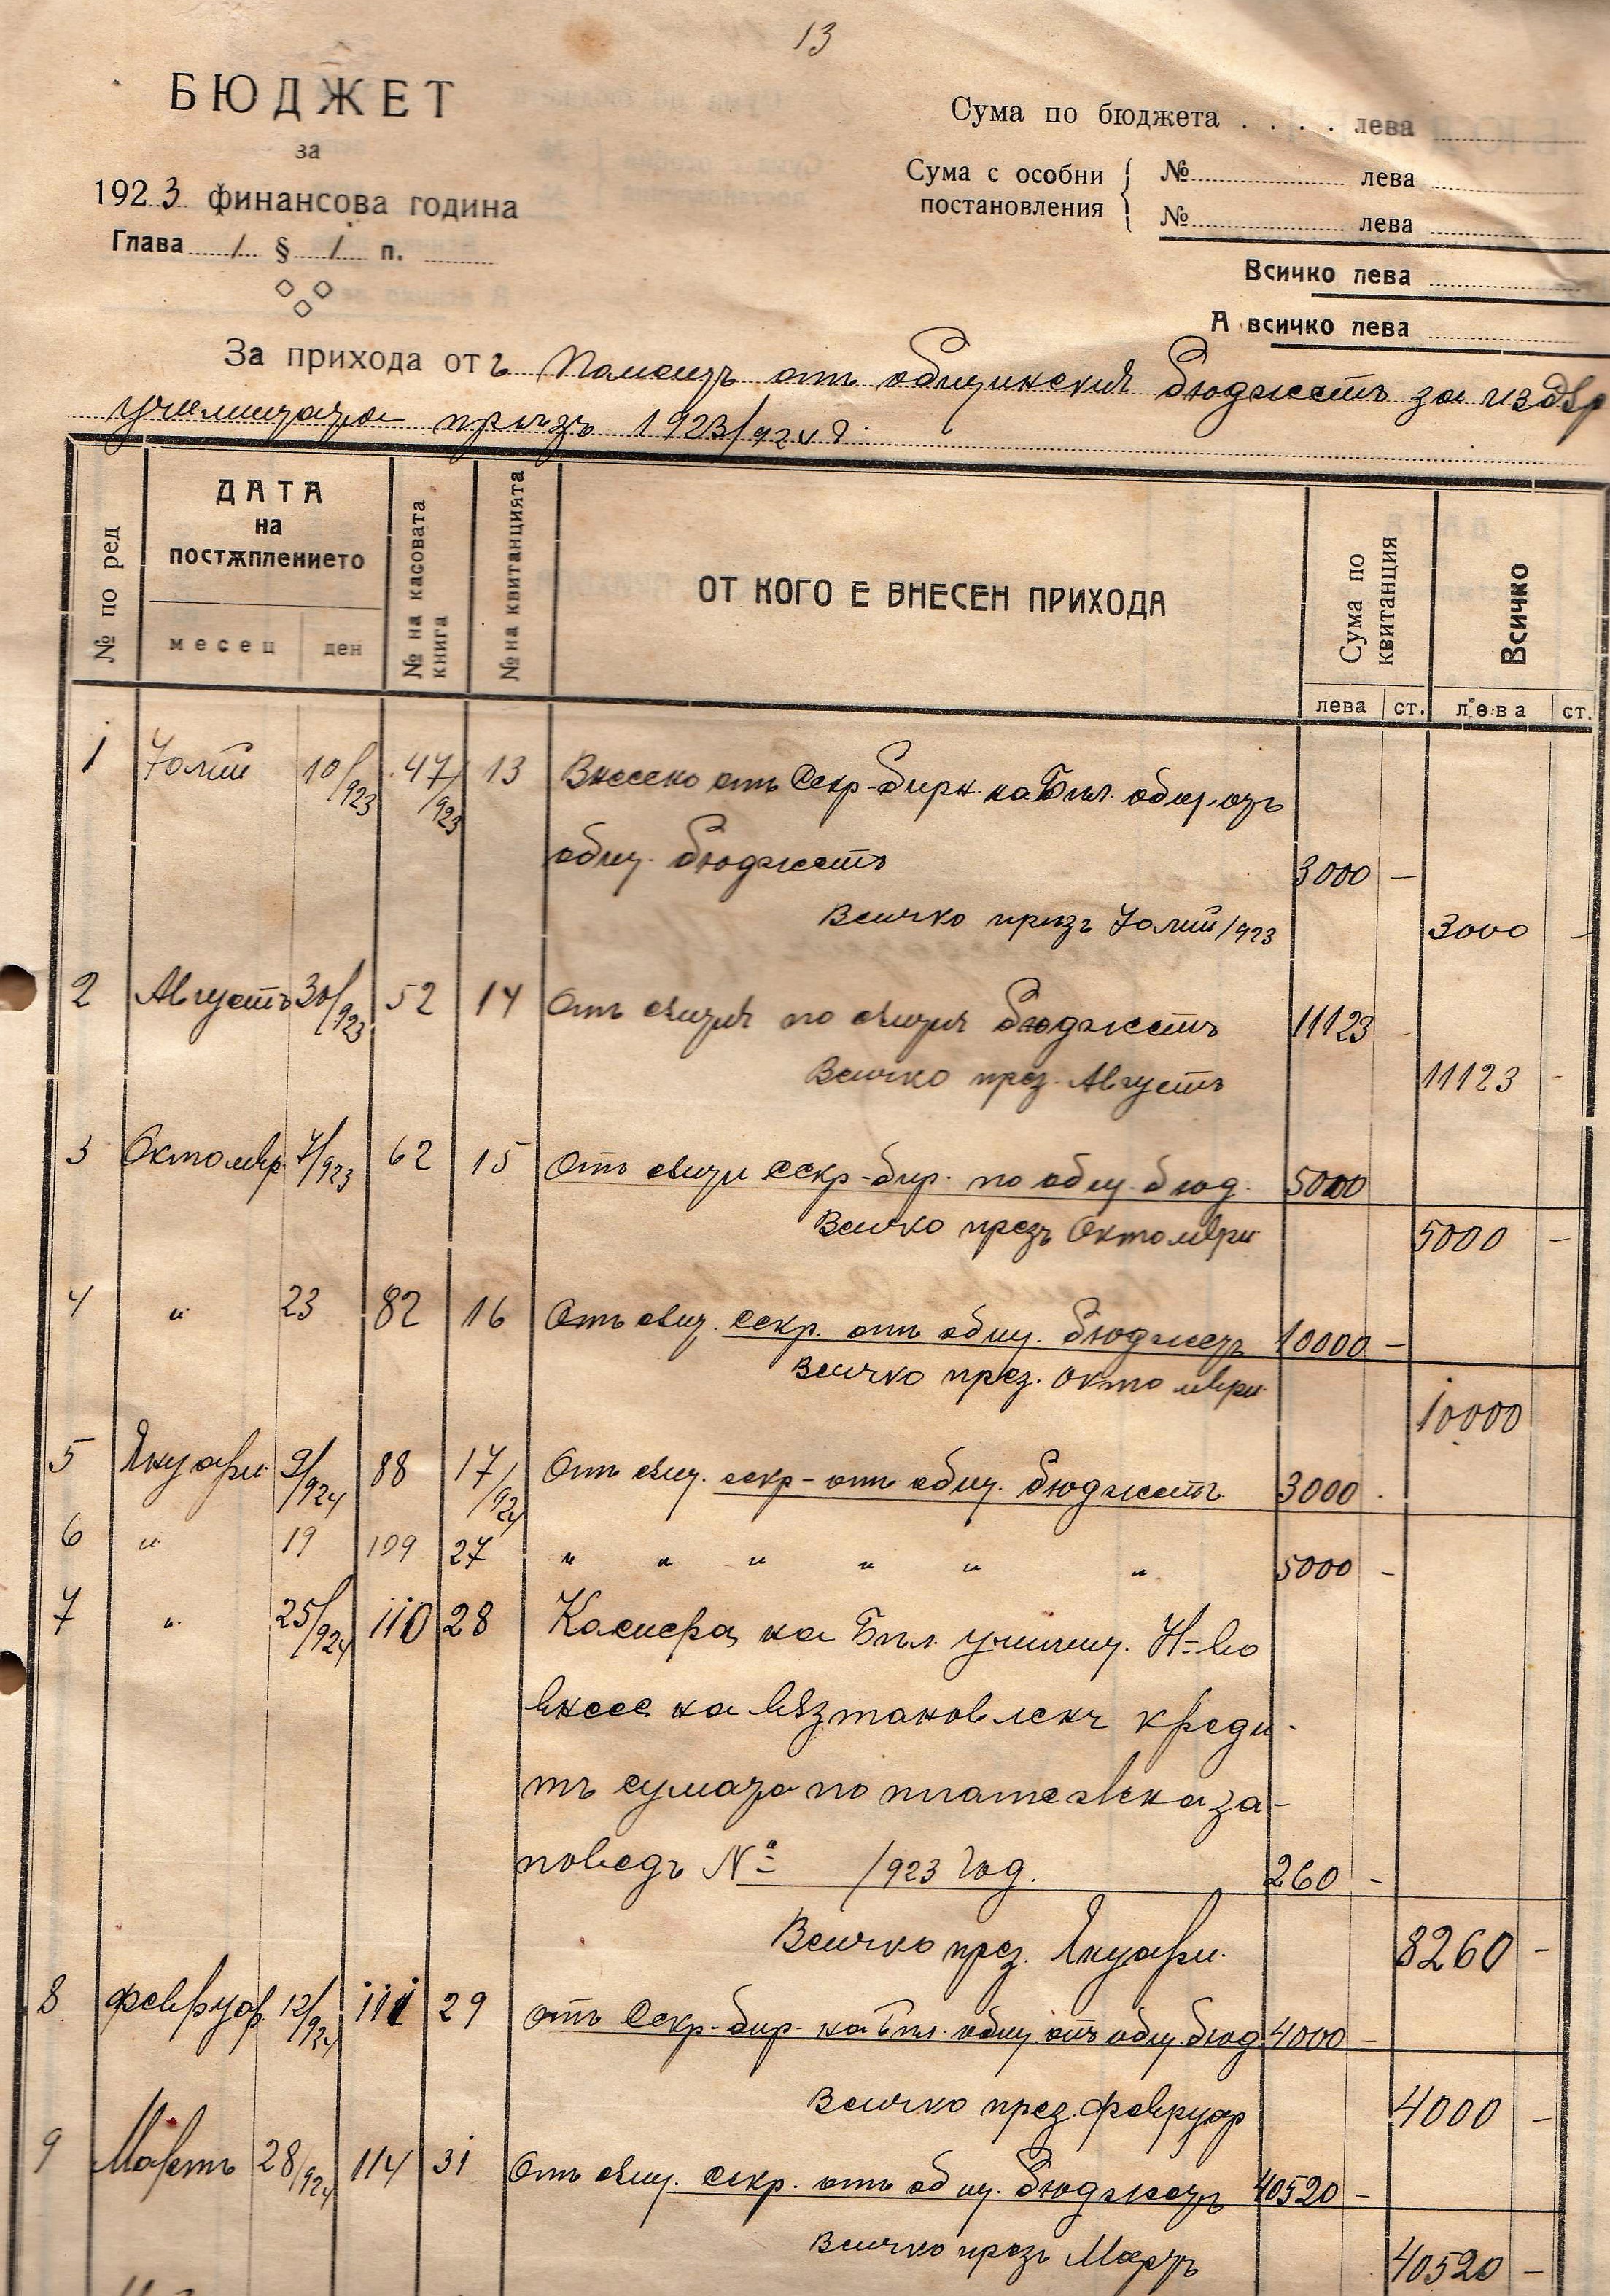 13
БЮДЖЕТ
за
1923 финансова година
Глава 1 § 1 п.
Сума по бюджета . . . . лева
Сума с особни постановления
№ лева
№ лева
Всичко лева
А всичко лева
За прихода отъ Помощъ от общинския бюджетъ за издър
училищата презъ 1923/924 г.
№ по ред
ДАТА
на
постѫплението
месец ден
№ на касовата книга
№ на квитанцията
ОТ КОГО Е ВНЕСЕН ПРИХОДА
Сума по квитанция
Всичко
лева ст. лева ст.
1 Юлий 10/923 47/923 13 Внесено отъ Секр-бирн. на Бѣл. общ. отъ
общ. бюджетъ 3000 —
Всичко презъ Юлий/923 3000 —
2 Августъ 30/923 52 14 Отъ сѫщия по сѫщия бюджетъ 11123 -
Всичко през. Августъ 11123 -
3 Октомвр. 7/923 62 15 Отъ сѫщи секр-бир. по общ. бюд. 5000
Всичко презъ Октомври 5000 —
4 " 23 82 16 Отъ сѫщ. секр. отъ общ. бюджетъ 10000 —
Всичко през. Октомври 10000
5 Януари 9/924 88 17/924 Отъ сѫщ. секр- отъ общ. бюджетъ 3000 -
6 " 19 109 27 " " " " " " 5000 -
7 " 25/924 110 28 Касиера на Бѣл. училищ. Н-во
внесе на възтановленъ креди-
тъ сумата по платежвна за-
поведъ № /923 год. 260 -
Всичко през. Януари. 8260 -
8 Февруар. 12/924 111 29 Отъ Секр.-бир- на Бѣл. общ. отъ общ. бюд. 4000 —
Всичко през. Февруар 4000 —
9 Мартъ 28/924 114 31 Отъ сѫщ. секр. отъ общ. бюджетъ 40520 —
Всичко презъ Мартъ 40520 —